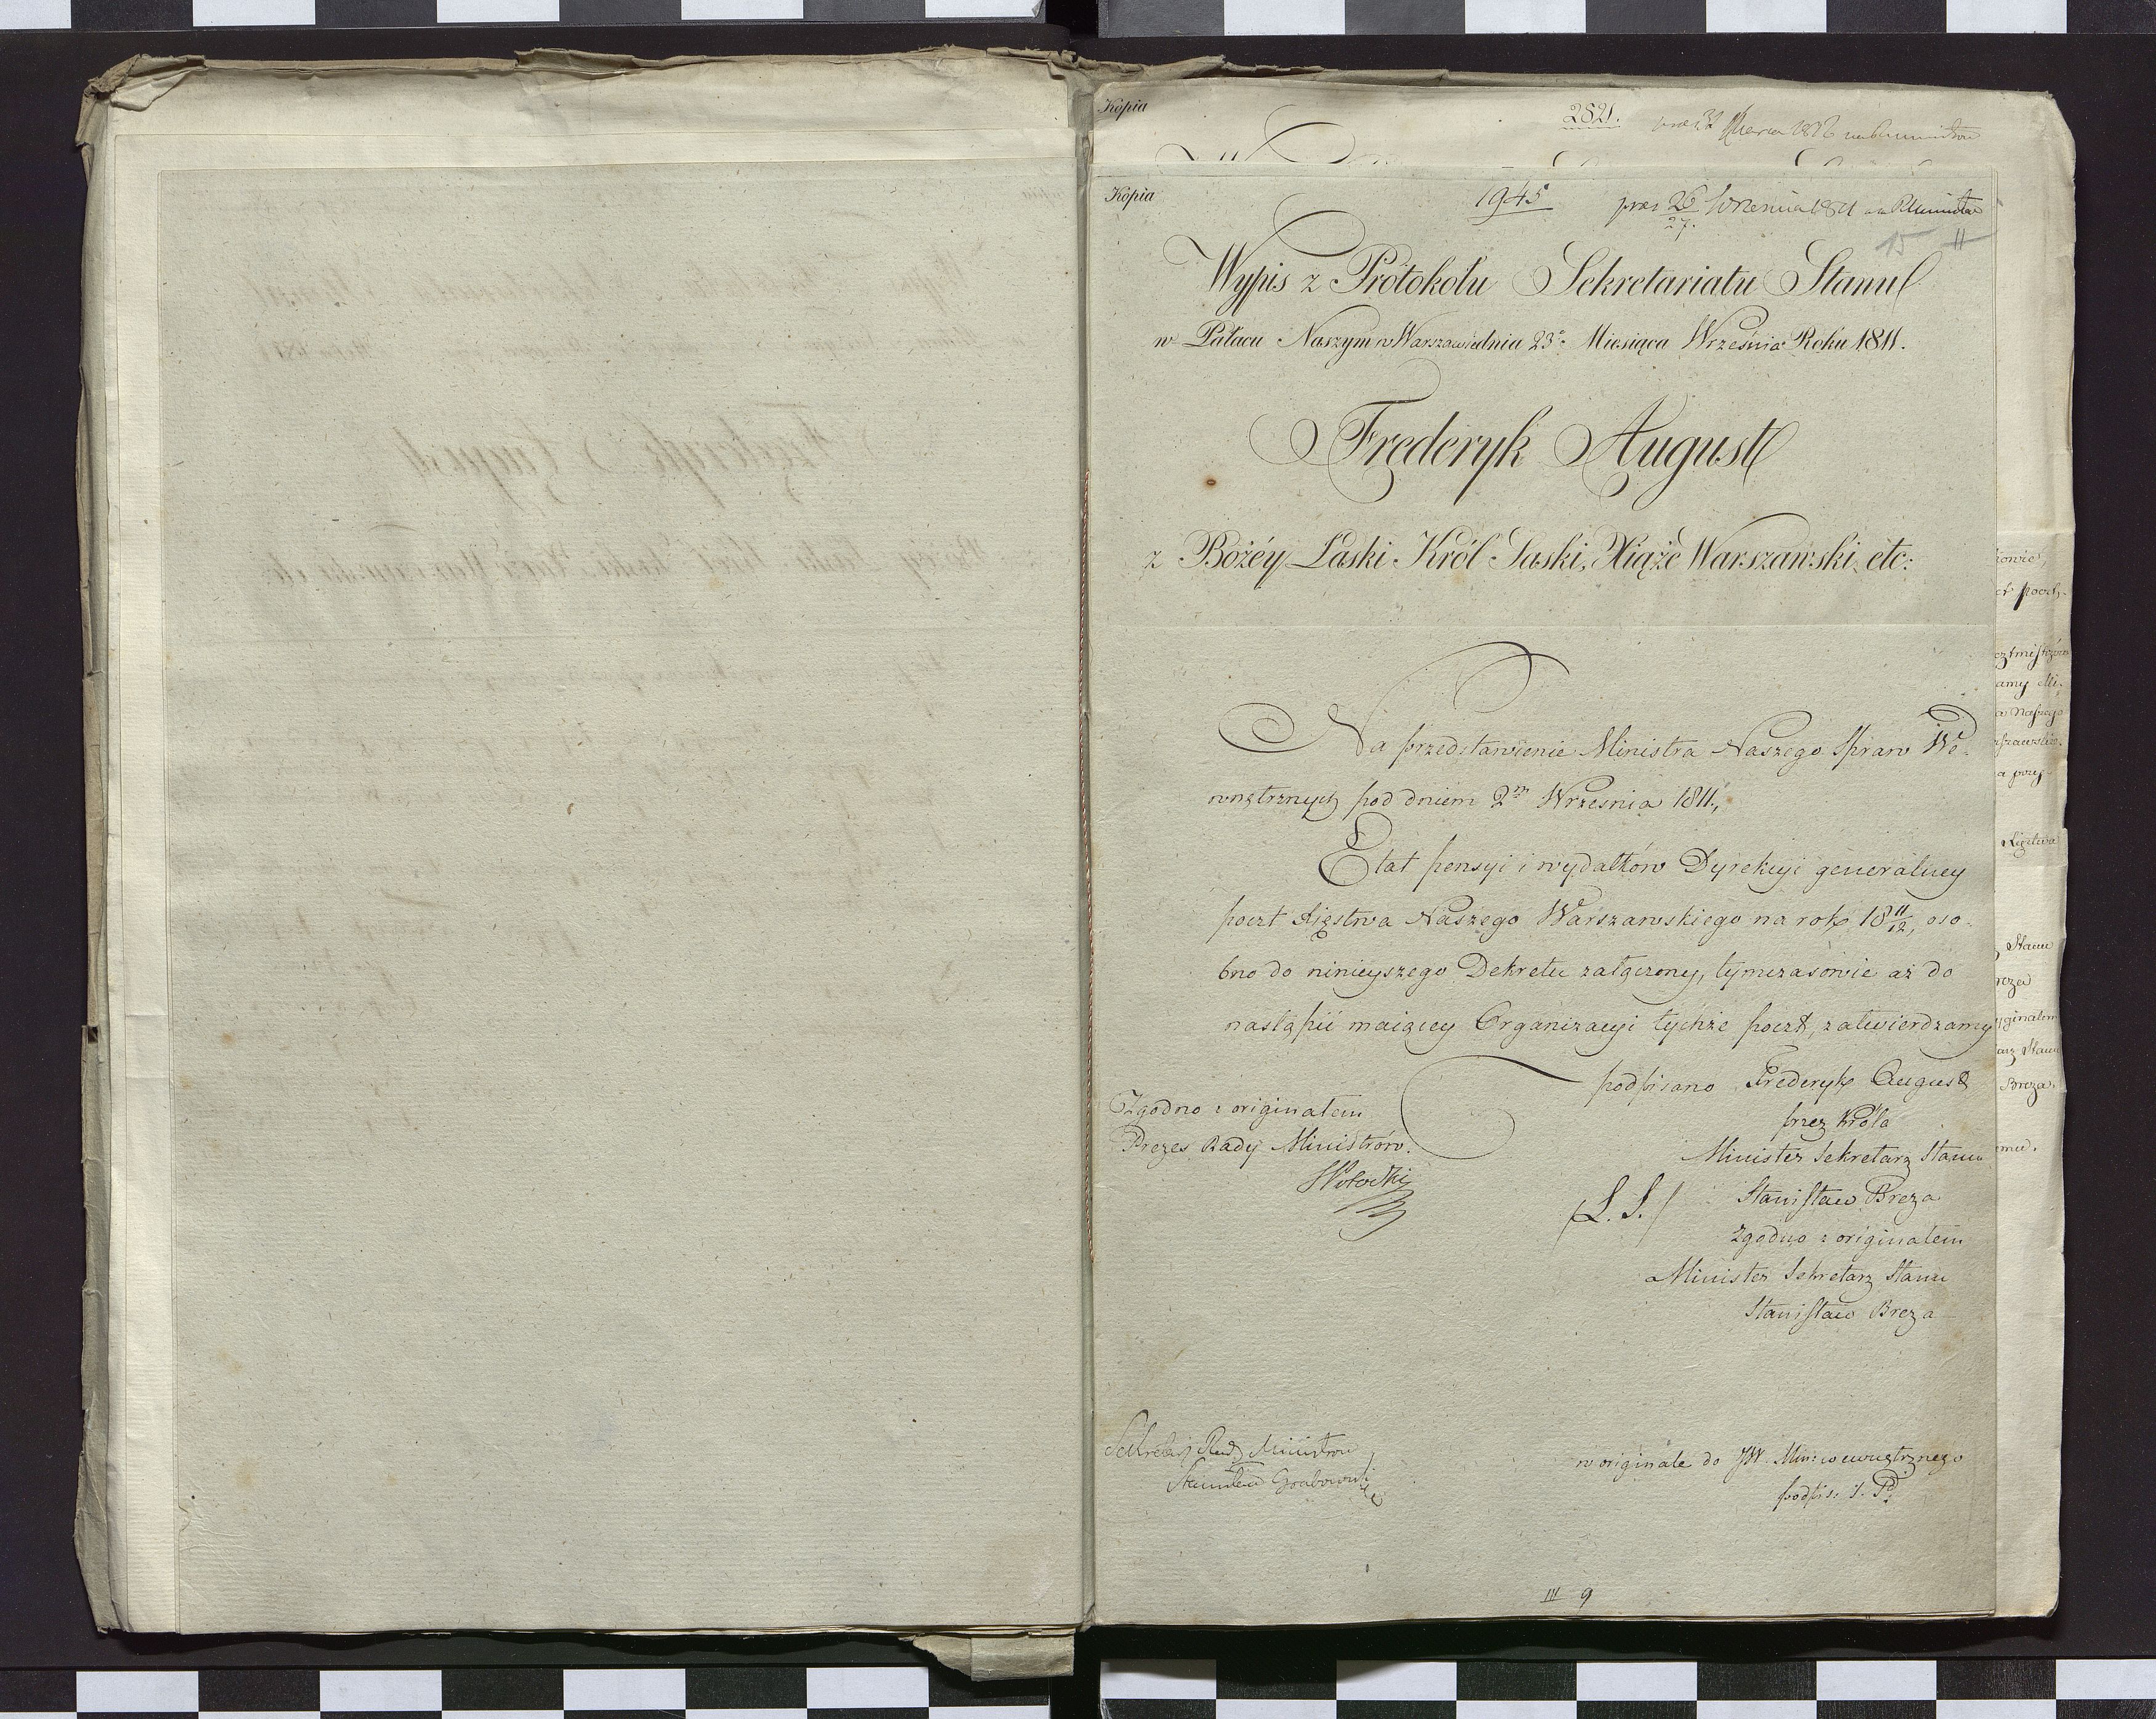 Kopia
2821.
Kopia
1945
praes 26 Września 1811
27.
15 11
Wypis z Protokołu Sekretariatu Stanu
w Pałacu Naszym w Warszawie dnia 23° Miesiąca Września Roku 1811.
Frederyk August
z Bożéy Łaski Król Saski, Xiąże Warszawski, etc:
Na przedstawienie Ministra Naszego Spraw We-
wnętrznych pod dniem 2m Września 1811,
Etat pensyi i wydatków Dyrekcyi generalney
poczt Xięstwa Naszego Warszawskiego na rok 18 11/12, oso-
bno do ninieyszego Dekretu załączony, tymczasowie aż do
nastąpić maiącey Organizacyi tychże poczt, zatwierdzamy
podpisano Frederyk August
przez Króla
Minister Sekretarz Stanu
(L. S.) Stanisław Breza
Zgodno z originałem
Minister Sekretarz Stanu
Stanisław Breza
Zgodno z originałem
Prezes Rady Ministrów.
SPotocki
Sekretarz Rady Ministrow
Stanisław Grabowski
w originale do JW. Min: wewnętrznego
podpis: S. P.
III 9
kowie,
amy Mi-
a Naszego
a przy-
Xięstwa
Stanu
reza
yginałem
arz Stanu
Breza.